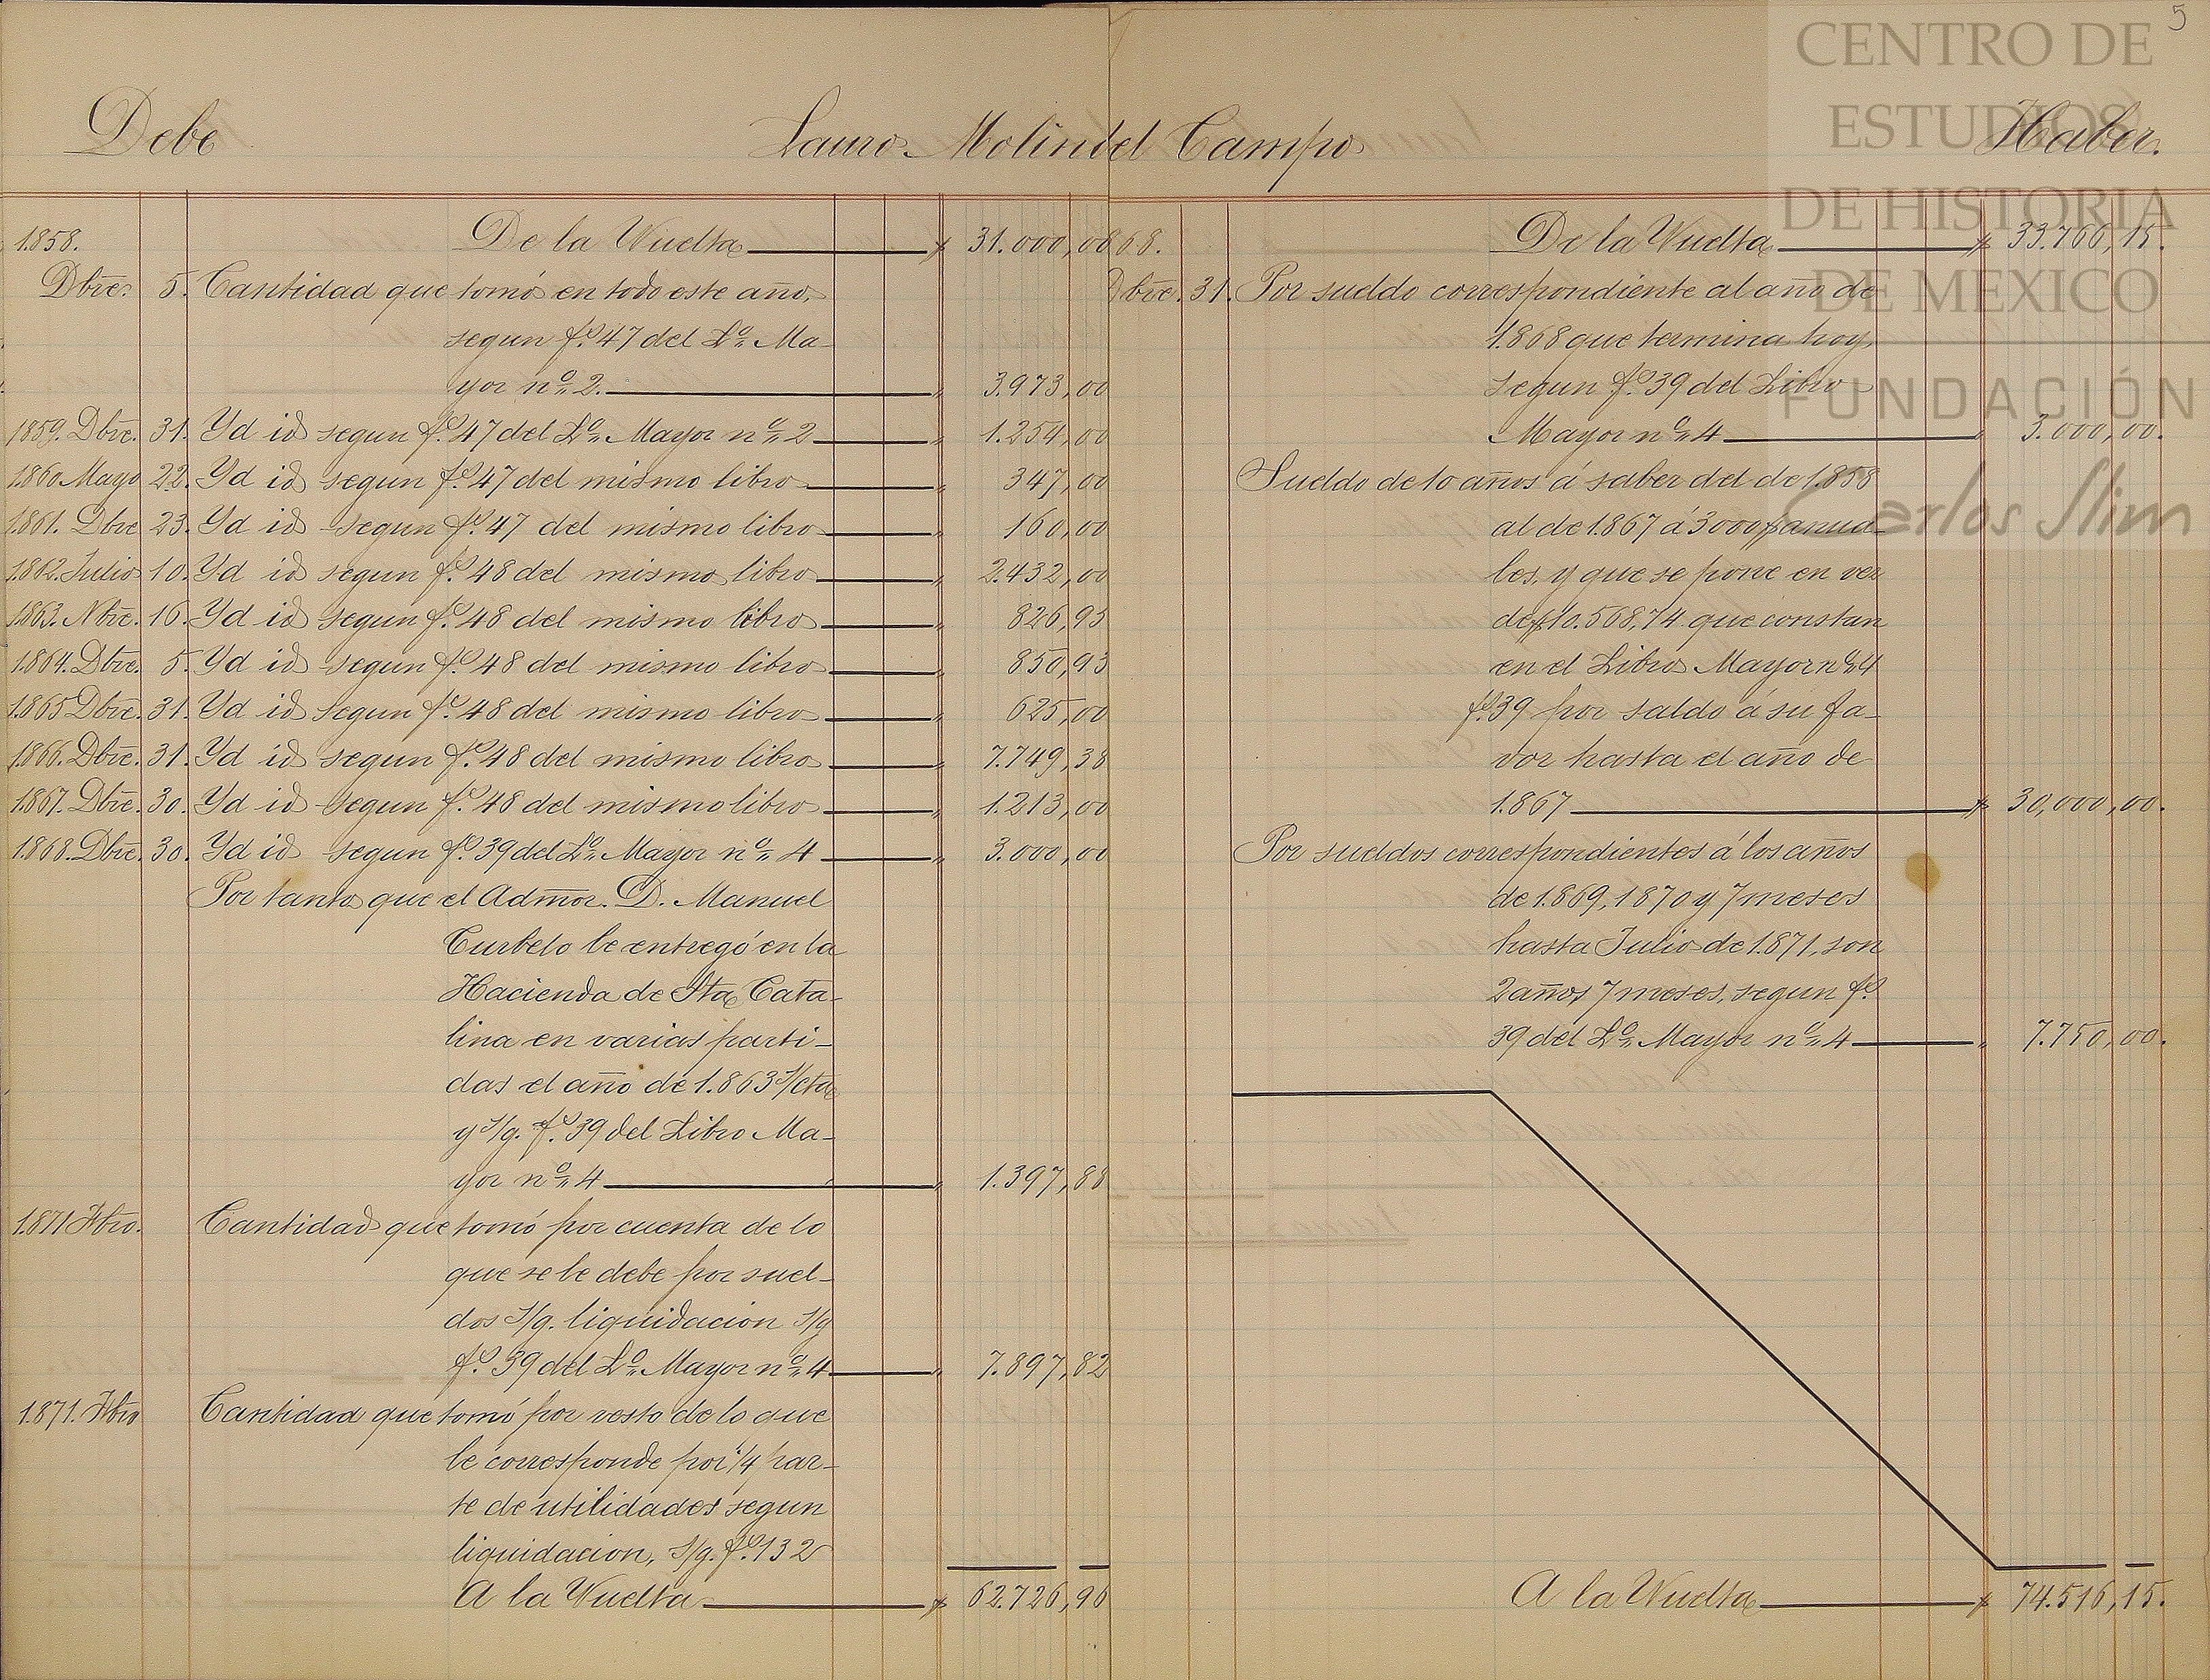 5
CENTRO DE
ESTUDIOS
DE HISTORIA
DE MEXICO
FUNDACIÓN
Carlos Slim
Debe
Lauro Molin del Campo
Haber.
1.858. De la Vuelta $ 31.000,00
Dbre. 5. Cantidad que tomó en todo este año,
segun fº 47 del Lº Ma-
yor nº 2. " 3.973,00
1859. Dbre. 31. Yd id segun fº 47 del Lº Mayor nº 2 " 1.254,00
1.860 Mayo 22. Yd id segun fº 47 del mismo libro " 347,00
1.861. Dbre 23. Yd id segun fº 47 del mismo libro " 160,00
1.862. Julio 10. Yd id segun fº 48 del mismo libro " 2.432,00
1.863. Nbre. 16. Yd id segun fº 48 del mismo libro " 826,95
1.864. Dbre. 5. Yd id segun fº 48 del mismo libro " 850,93
1.865 Dbre. 31. Yd id segun fº 48 del mismo libro " 625,00
1.866. Dbre. 31. Yd id segun fº 48 del mismo libro " 7.749,38
1.867. Dbre. 30. Yd id segun fº 48 del mismo libro " 1.213,00
1.868. Dbre. 30. Yd id segun fº 39 del Lº Mayor nº 4 " 3.000,00
Por tanto que el Admor. D. Manuel
Curbelo le entregó en la
Hacienda de Sta Cata-
lina en varias parti-
das el año de 1.863 s/cta
y s/g. fº 39 del Libro Ma-
yor nº 4 " 1.397,88
1.871 Fbro. Cantidad que tomó por cuenta de lo
que se le debe por suel-
dos s/g. liquidacion s/g
fº 39 del Lº Mayor nº 4 " 7.897,82
1.871. Fbro Cantidad que tomó por resto de lo que
le corresponde por 1/4 par-
te de utilidades segun
liquidacion, s/g. fº 132
A la Vuelta $ 62.726,96
68. De la Vuelta $ 33.766,15.
Dbre. 31. Por sueldo correspondiente al año de
1.868 que termina hoy,
segun fº 39 del Libro
Mayor nº 4 " 3.000,00.
Sueldo de 10 años á saber del de 1.858
al de 1.867 á 3000 $ anua-
les, y que se pone en vez
de $ 10.568,74 que constan
en el Libro Mayor nº 4
fº 39 por saldo á su fa-
vor hasta el año de
1.867 $ 30,000,00.
Por sueldos correspondientes á los años
de 1.869, 1870 y 7 meses
hasta Julio de 1.871, son
2 años 7 meses, segun fº
39 del Lº Mayor nº 4 " 7.750,00.
A la Vuelta $ 74.516,15.